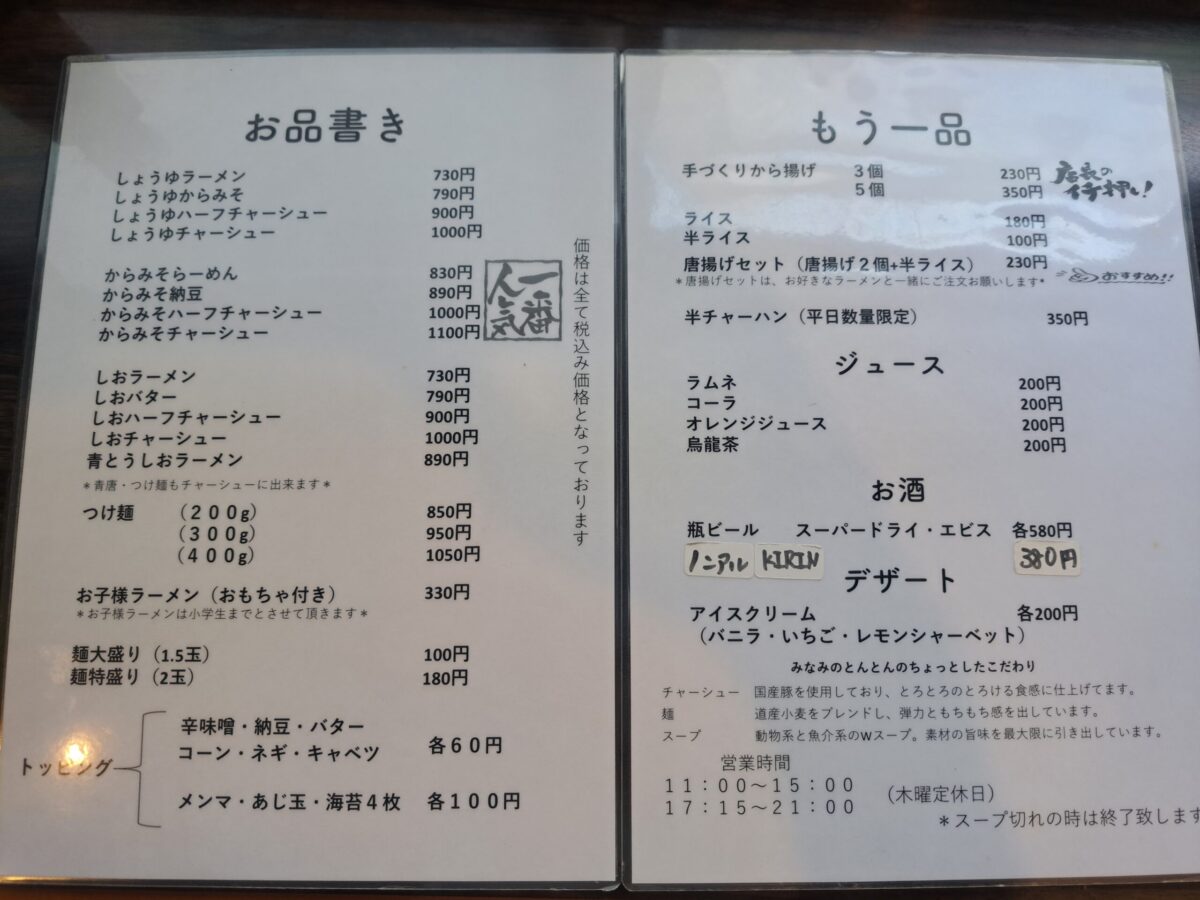 お品書き
しょうゆラーメン 730円
しょうゆからみそ 790円
しょうゆハーフチャーシュー 900円
しょうゆチャーシュー 1000円
からみそらーめん 830円
からみそ納豆 890円
からみそハーフチャーシュー 1000円
からみそチャーシュー 1100円
一番人気
価格は全て税込み価格となっております
しおラーメン 730円
しおバター 790円
しおハーフチャーシュー 900円
しおチャーシュー 1000円
青とうしおラーメン 890円
*青唐・つけ麺もチャーシューに出来ます*
つけ麺 （２００g） 850円
（３００g） 950円
（４００g） 1050円
お子様ラーメン（おもちゃ付き） 330円
*お子様ラーメンは小学生までとさせて頂きます*
麺大盛り（1.5玉） 100円
麺特盛り（2玉） 180円
トッピング
辛味噌・納豆・バター
コーン・ネギ・キャベツ 各６０円
メンマ・あじ玉・海苔４枚 各１００円
もう一品
手づくりから揚げ ３個 230円
５個 350円
店長のイチ押し!
ライス 180円
半ライス 100円
唐揚げセット（唐揚げ２個+半ライス） 230円
*唐揚げセットは、お好きなラーメンと一緒にご注文お願いします*
おすすめ!!
半チャーハン（平日数量限定） 350円
ジュース
ラムネ 200円
コーラ 200円
オレンジジュース 200円
烏龍茶 200円
お酒
瓶ビール スーパードライ・エビス 各580円
ノンアル KIRIN 380円
デザート
アイスクリーム 各200円
（バニラ・いちご・レモンシャーベット）
みなみのとんとんのちょっとしたこだわり
チャーシュー 国産豚を使用しており、とろとろのとろける食感に仕上げてます。
麺 道産小麦をブレンドし、弾力ともちもち感を出しています。
スープ 動物系と魚介系のWスープ。素材の旨味を最大限に引き出しています。
営業時間
１１：００～１５：００
１７：１５～２１：００ （木曜定休日）
*スープ切れの時は終了致します